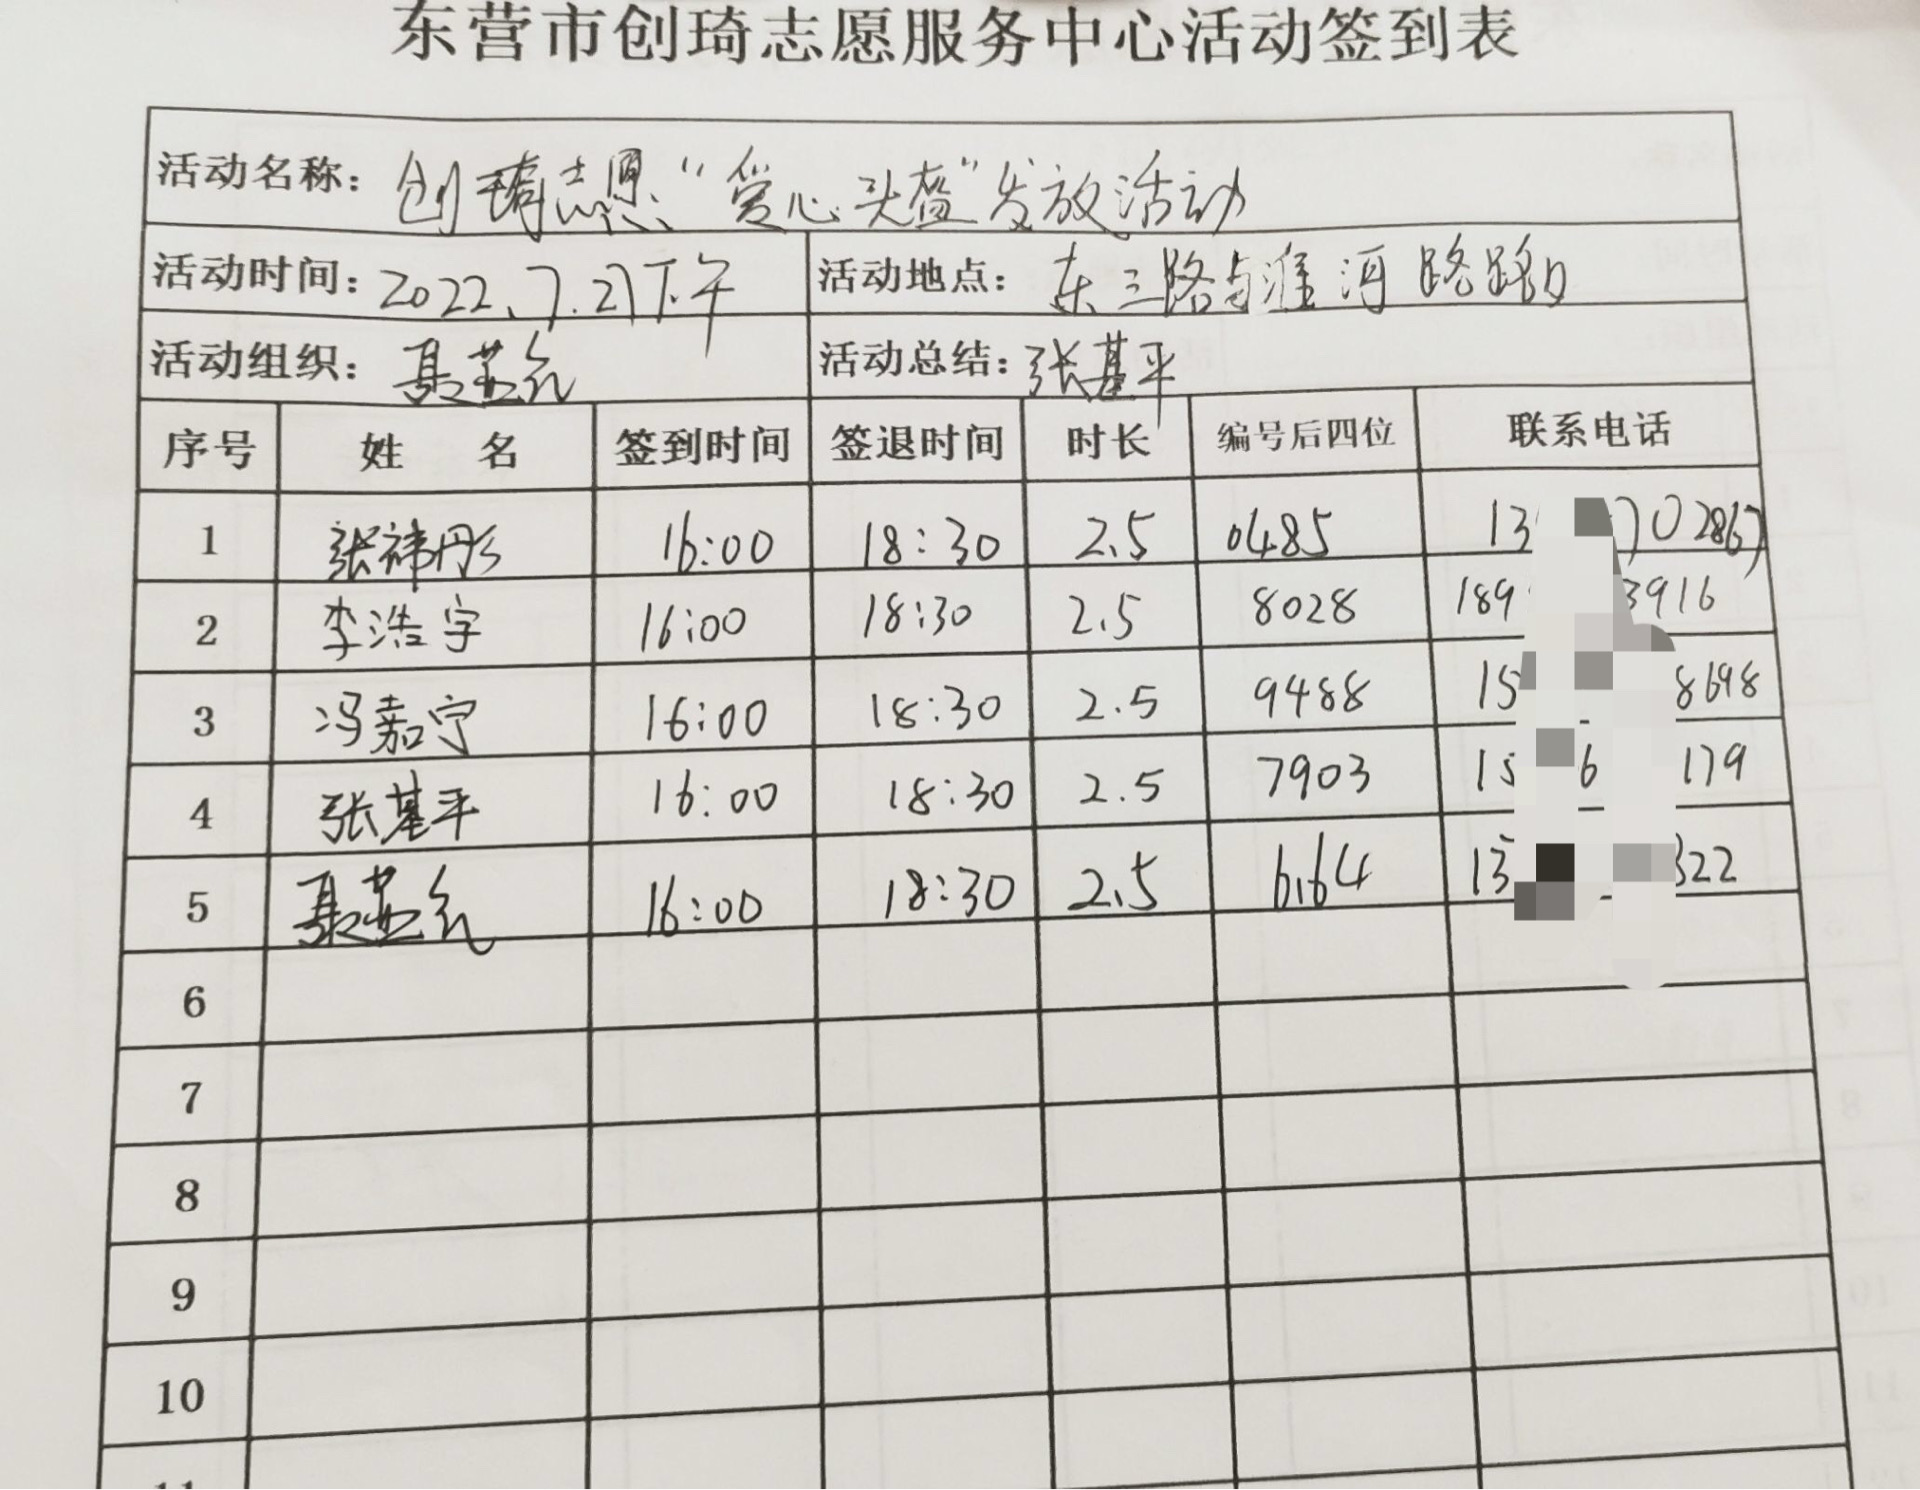 东营市创琦志愿服务中心活动签到表
活动名称：创琦志愿“爱心头盔”发放活动
活动时间：2022.7.27下午 活动地点：东三路与淮河路路口
活动组织：聂芸 活动总结：张基平
序号 姓 名 签到时间 签退时间 时长 编号后四位 联系电话
1 张祎彤 16:00 18:30 2.5 0485 13 702867
2 李浩宇 16:00 18:30 2.5 8028 189 3916
3 冯嘉宁 16:00 18:30 2.5 9488 15 8698
4 张基平 16:00 18:30 2.5 7903 15 6 179
5 聂芸 16:00 18:30 2.5 6164 13 322
6
7
8
9
10
11